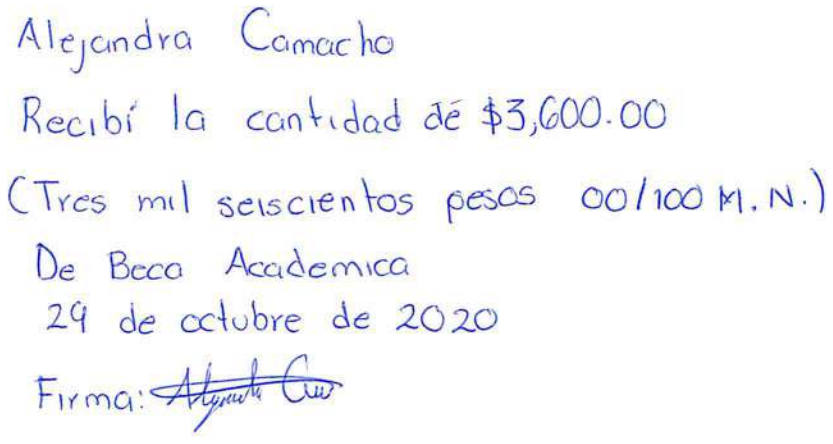 Alejandra Camacho
Recibí la cantidad de $3,600.00
(Tres mil seiscientos pesos 00/100 M.N.)
De Beca Academica
29 de octubre de 2020
Firma: